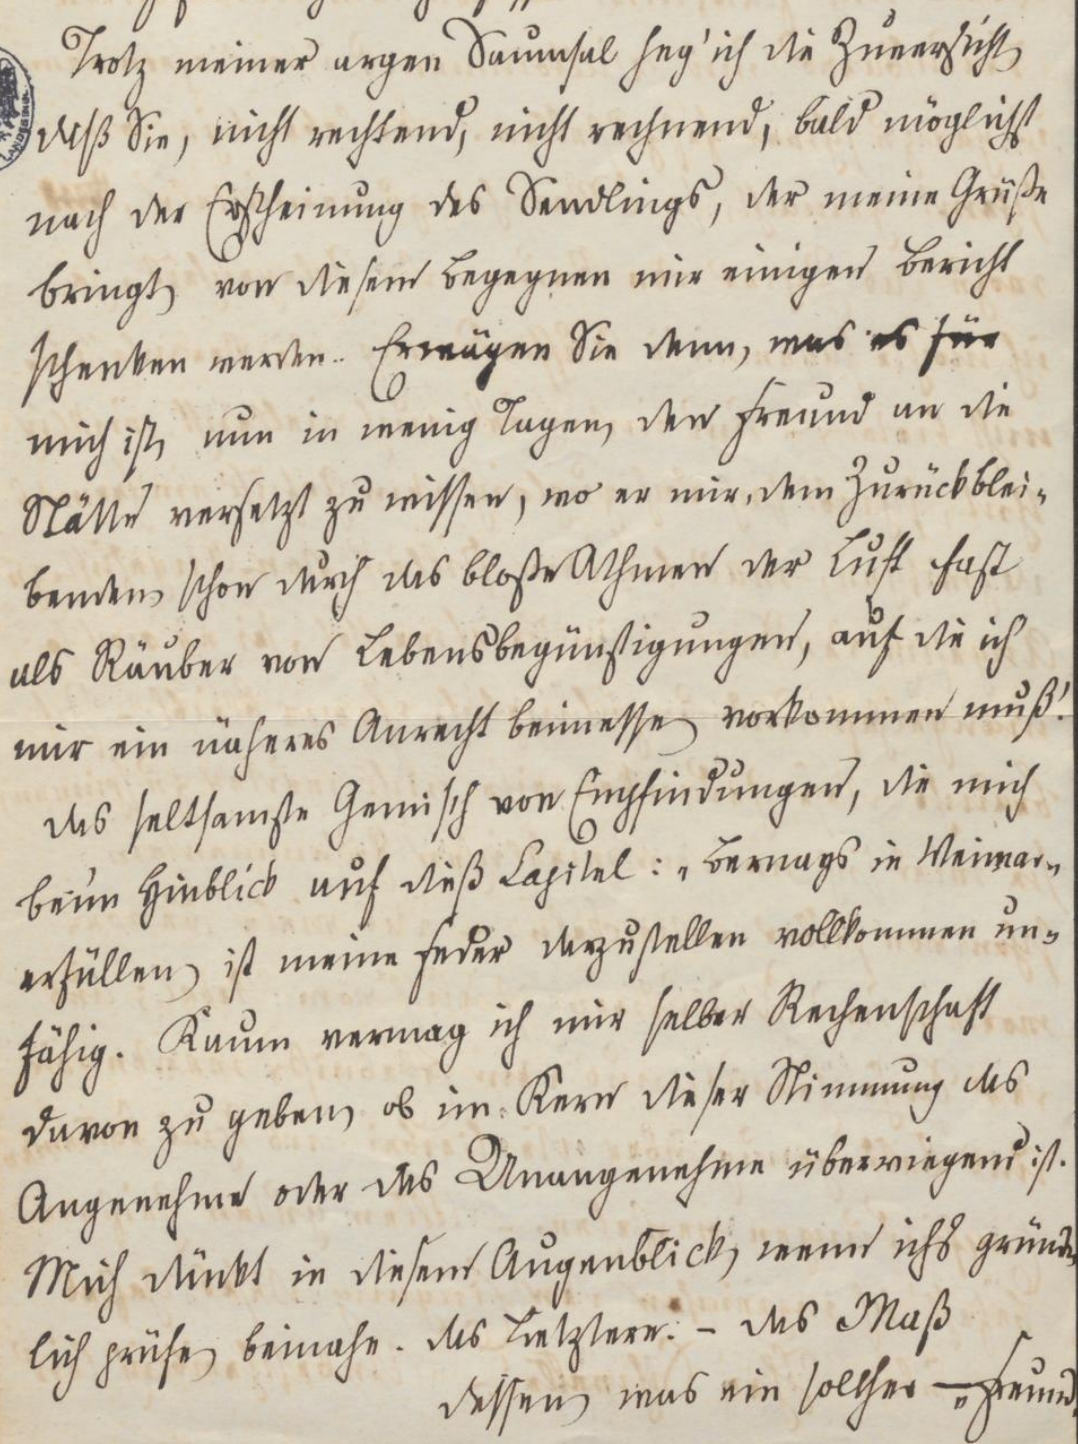 Trotz meiner argen Saumsal heg' ich die Zuversicht
daß Sie, nicht rechtend, nicht rechnend, bald möglichst
nach der Erscheinung des Sendlings, der meine Grüße
bringt, von diesem Begegnen mir einigen Bericht
schenken werden. Erwägen Sie denn, was es für
mich ist, nun in wenig Tagen, den Freund an die
Stätte versetzt zu wissen, wo er mir, dem Zurückblei-
benden, schon durch das bloße Athmen der Luft fast
als Räuber von Lebensbegünstigungen, auf die ich
mir ein näheres Anrecht beimesse, vorkommen muß!
das seltsamste Gemisch von Empfindungen, die mich
beim Hinblick auf dieß Capitel: „Bernays in Weimar„
erfüllen, ist meine Feder darzustellen vollkommen un-
fähig. Kaum vermag ich mir selber Rechenschaft
davon zu geben, ob im Kern dieser Stimmung das
Angenehme oder das Unangenehme überwiegend ist.
Mich dünkt in diesem Augenblick, wenn ichs gründ-
lich prüfe, beinahe das Letztere. – das Maß
dessen, was ein solcher — Freund